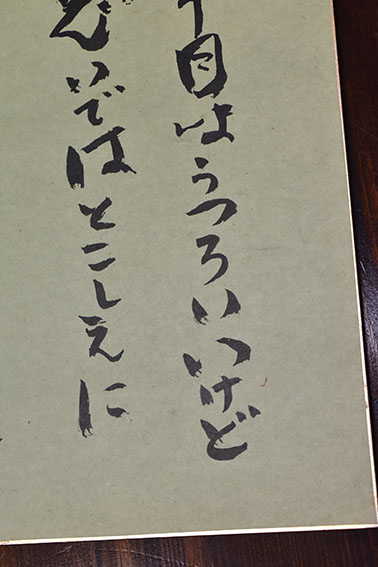 月はうつろいいけど
いではとこしえに